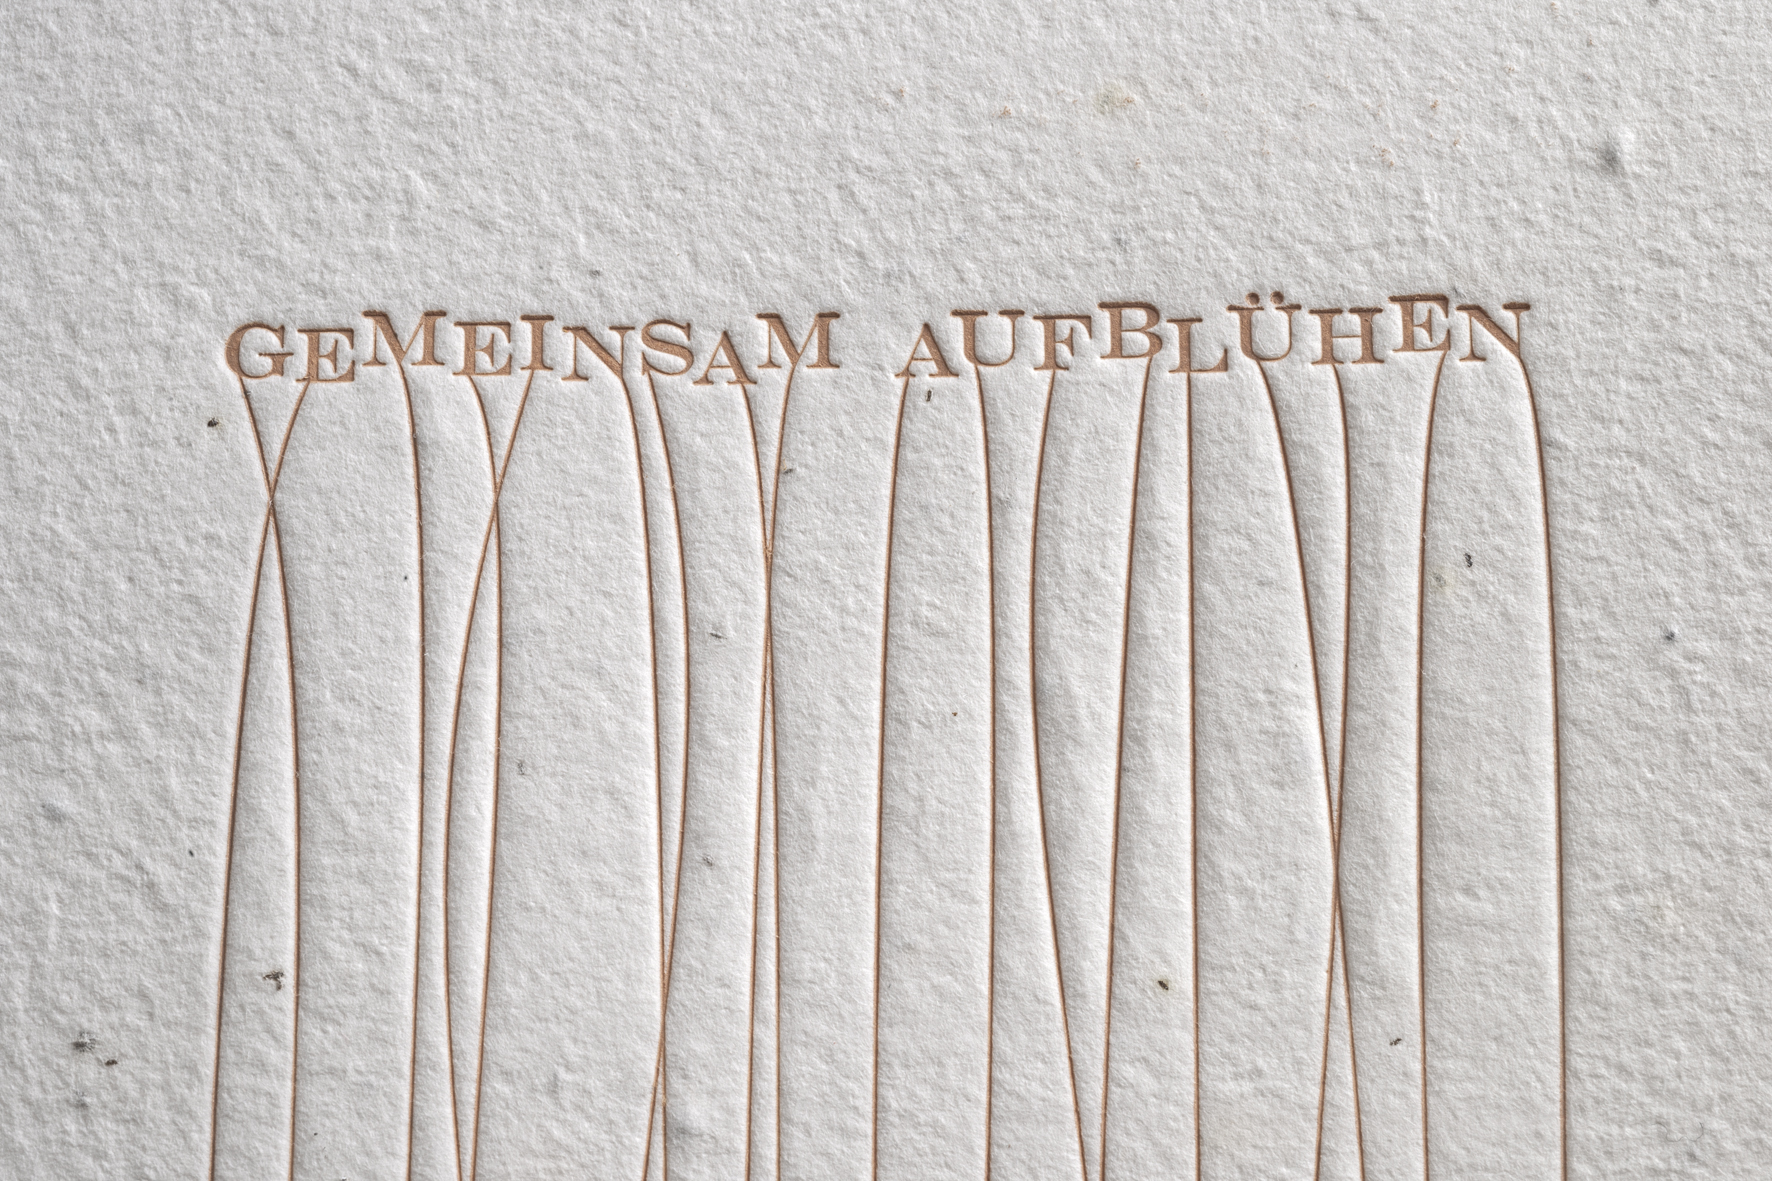 GEMEINSAM AUFBLÜHEN